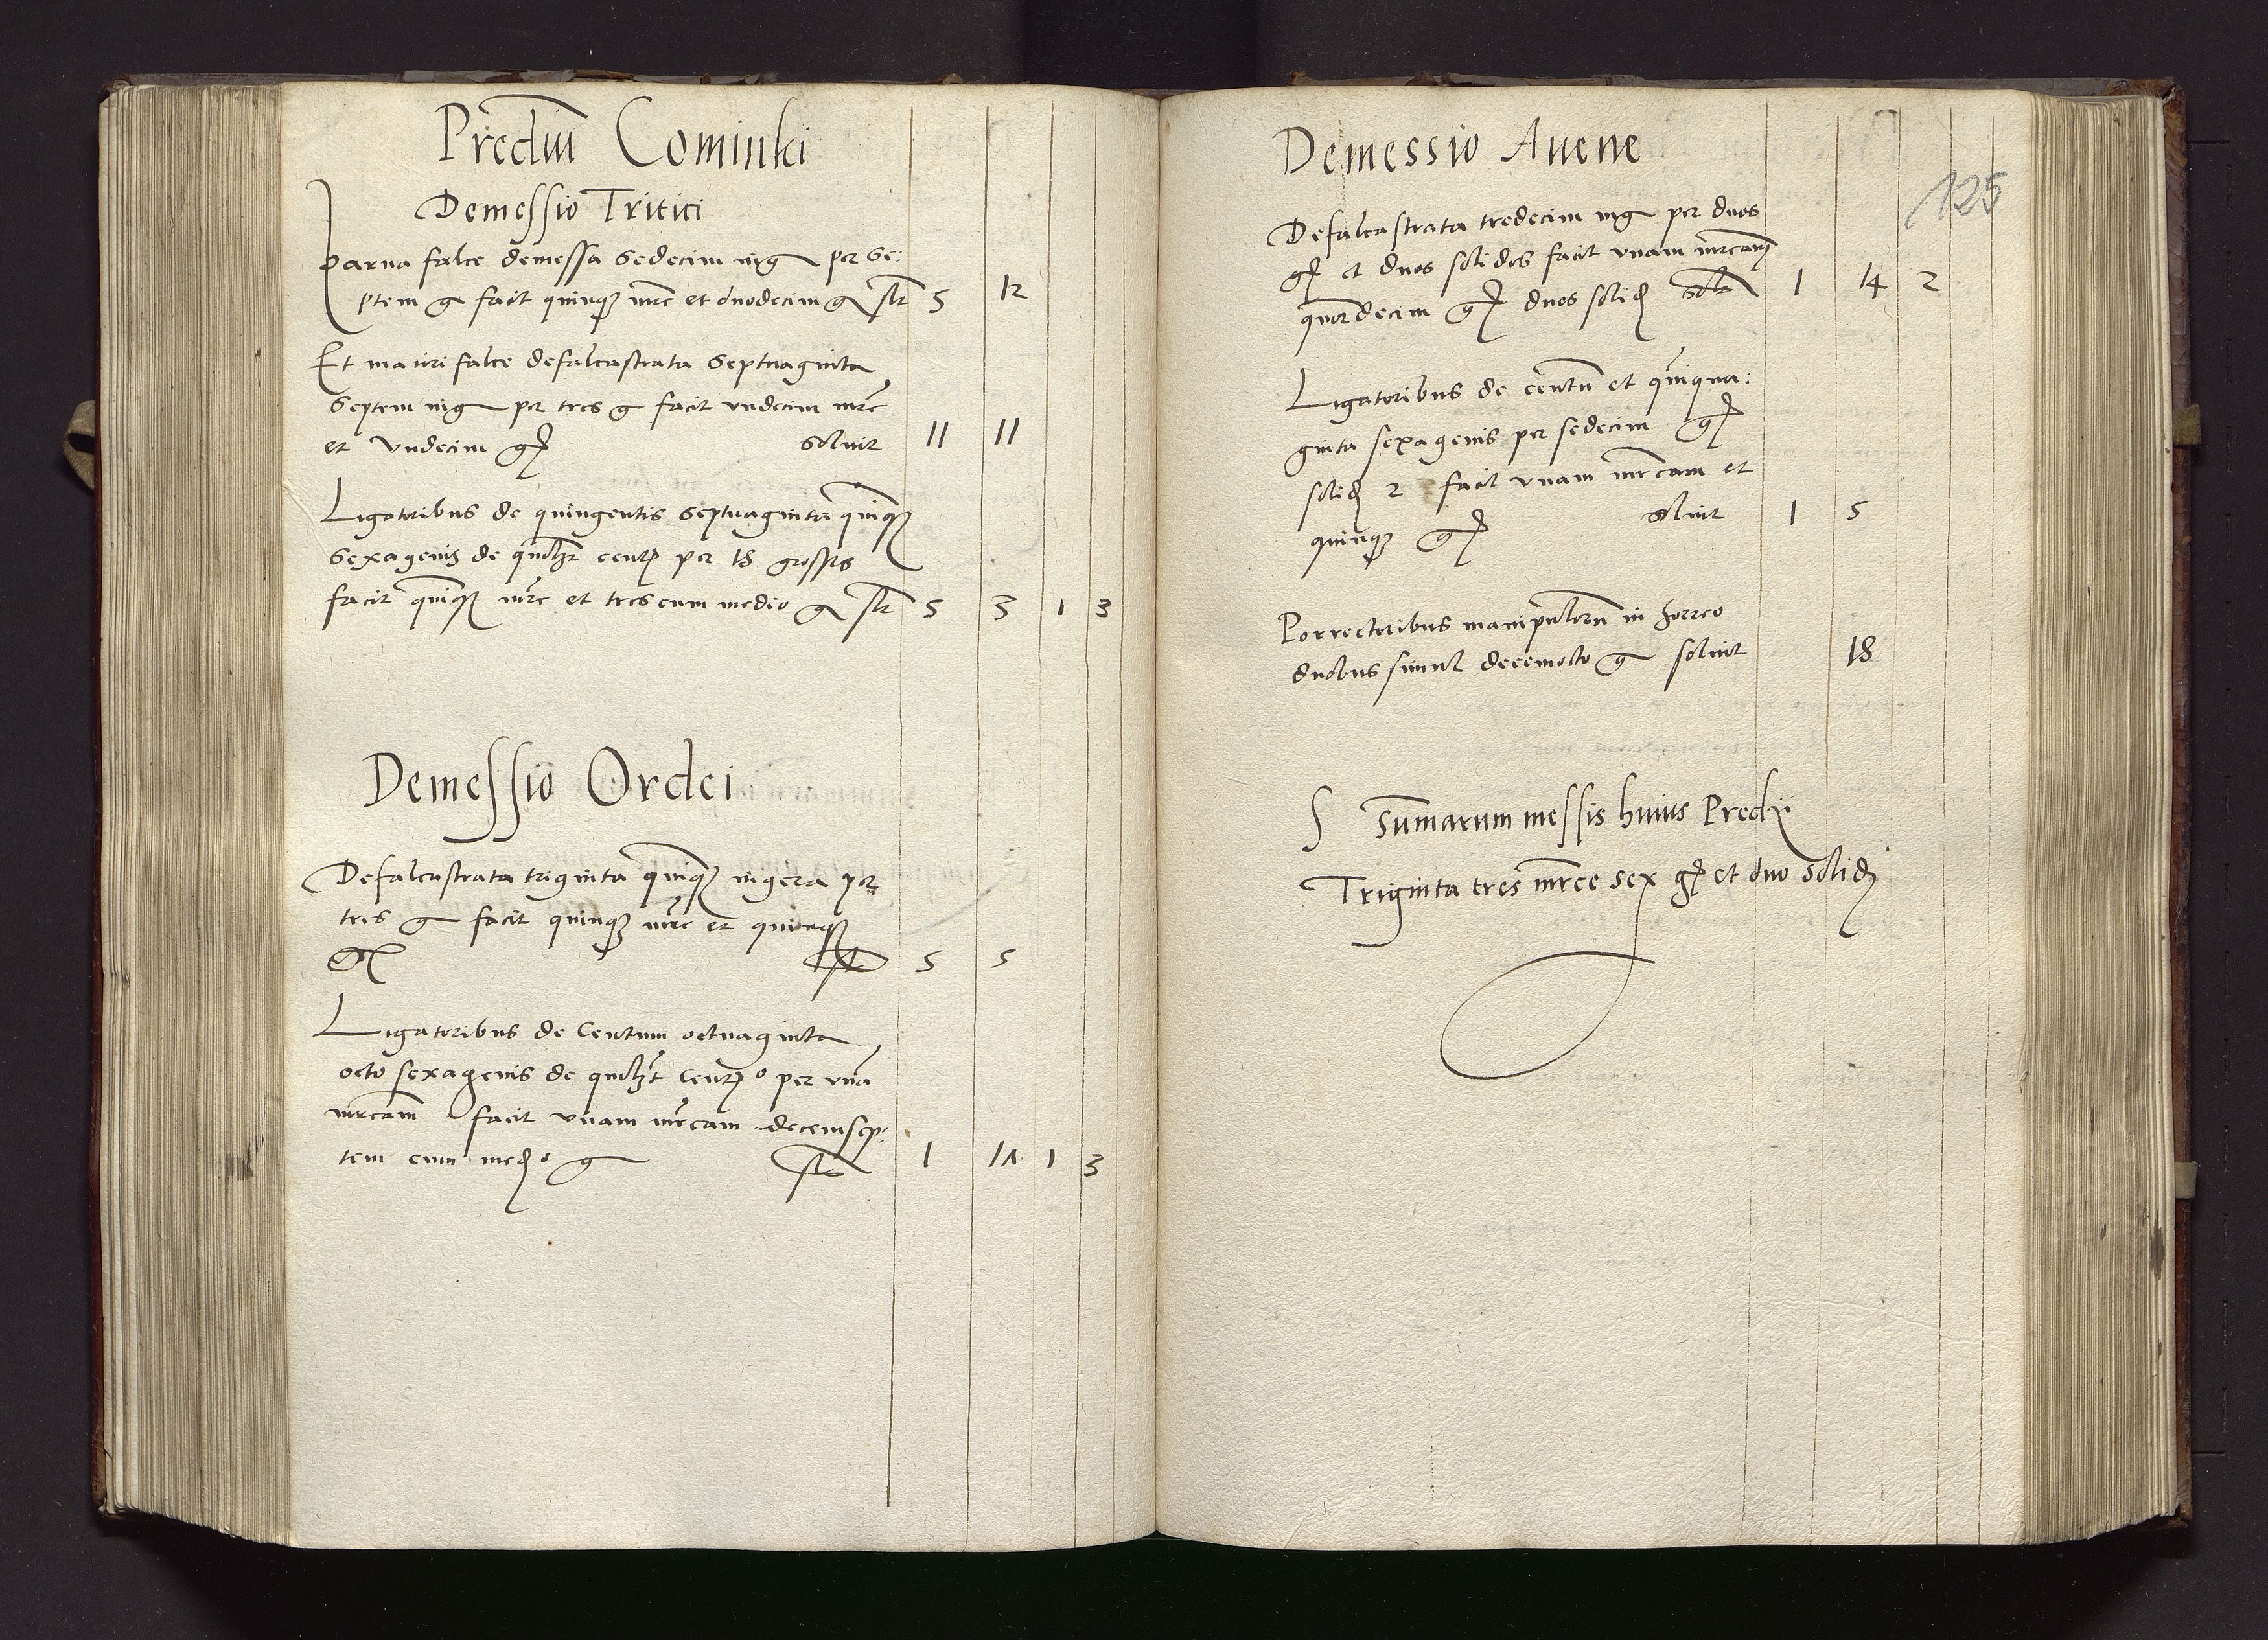 Prediu̅ Cominki
Demessio Tritici
Parua falce demessa sedecim iug per se:
ptem g facit quinq3 mrc et duodecim g slt 5 12
Et maiori falce defalcastrata septuaginta
septem iug per tres g facit undecim mrc
et vndecim g soluit 11 11
Ligatoribus de quingentis septuaginta quinq3
sexagenis de quolz cent per 18 grossis
facit quinq3 mrc et tres cum medio g slt 5 3 1 3
Demessio Ordei
Defalcastrata triginta quinq3 iugera per
tris g facit quinq3 mrc et quinq3
g slt 5 5
Ligatoribus de Centum octuaginta
octo sexagenis de quolzt Cento per vna̅
mrcam facit vnam mrcam decemsep:
tem cum medio g slt 1 1Λ 1 3
Demessio Auene
125
Defalcastrata tredecim iug per duos
g et duos solidos facit vnam mrcam
quordecim g duos solid solt 1 14 2
Ligatoribus de centu̅ et quinqua:
ginta sexagenis per sedecim g
solid 2 facit vnam mrcam et
quinq3 g soluit 1 5
Porrectoribus manipuloru̅ in horreo
duobus simul decemocto g soluit 18
S Su̅marum messis huius Predii
Triginta tres mrce sex g et duo solid